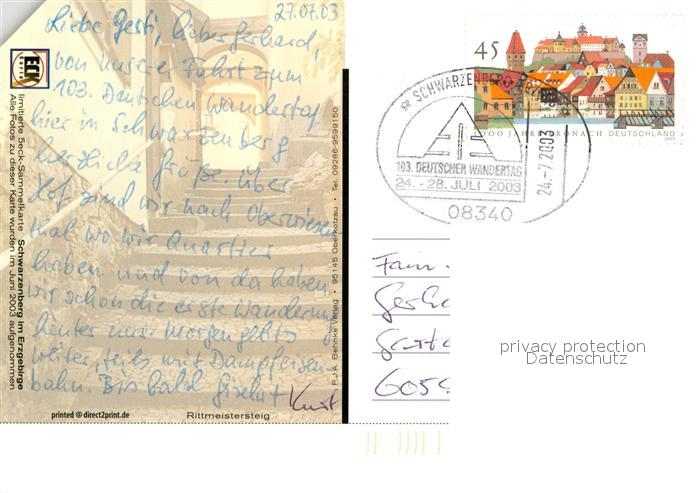 27.07.03
Liebe Gerti, Lieber Gerhard,
von unserer Fahrt zum
103. Deutschen Wandertag
hier in Schwarzenberg
herzliche Grüße. Über
Hof sind wir nach Oberwiesen
thal wo wir Quartier
haben und von da haben
wir schon die erste Wanderung
hinter uns. Morgen geht's
weiter, teils mit Dampfeisen-
bahn. Bis bald Gisela +
Kurt
ECK
limitierte 5eck-Sammelkarte Schwarzenberg im Erzgebirge
Alle Fotos zu dieser Karte wurden im Juni 2003 aufgenommen
P.J.A. Behnke Verlag • 95145 Oberkotzau • Tel. 09286-9599150
printed @ direct2print.de
Rittmeistersteig
45
1000 JAHRE KRONACH DEUTSCHLAND
SCHWARZENBERG
103. DEUTSCHER WANDERTAG
24. - 28. JULI 2003
08340
24.-7.2003
Fam.
privacy protection
Datenschutz